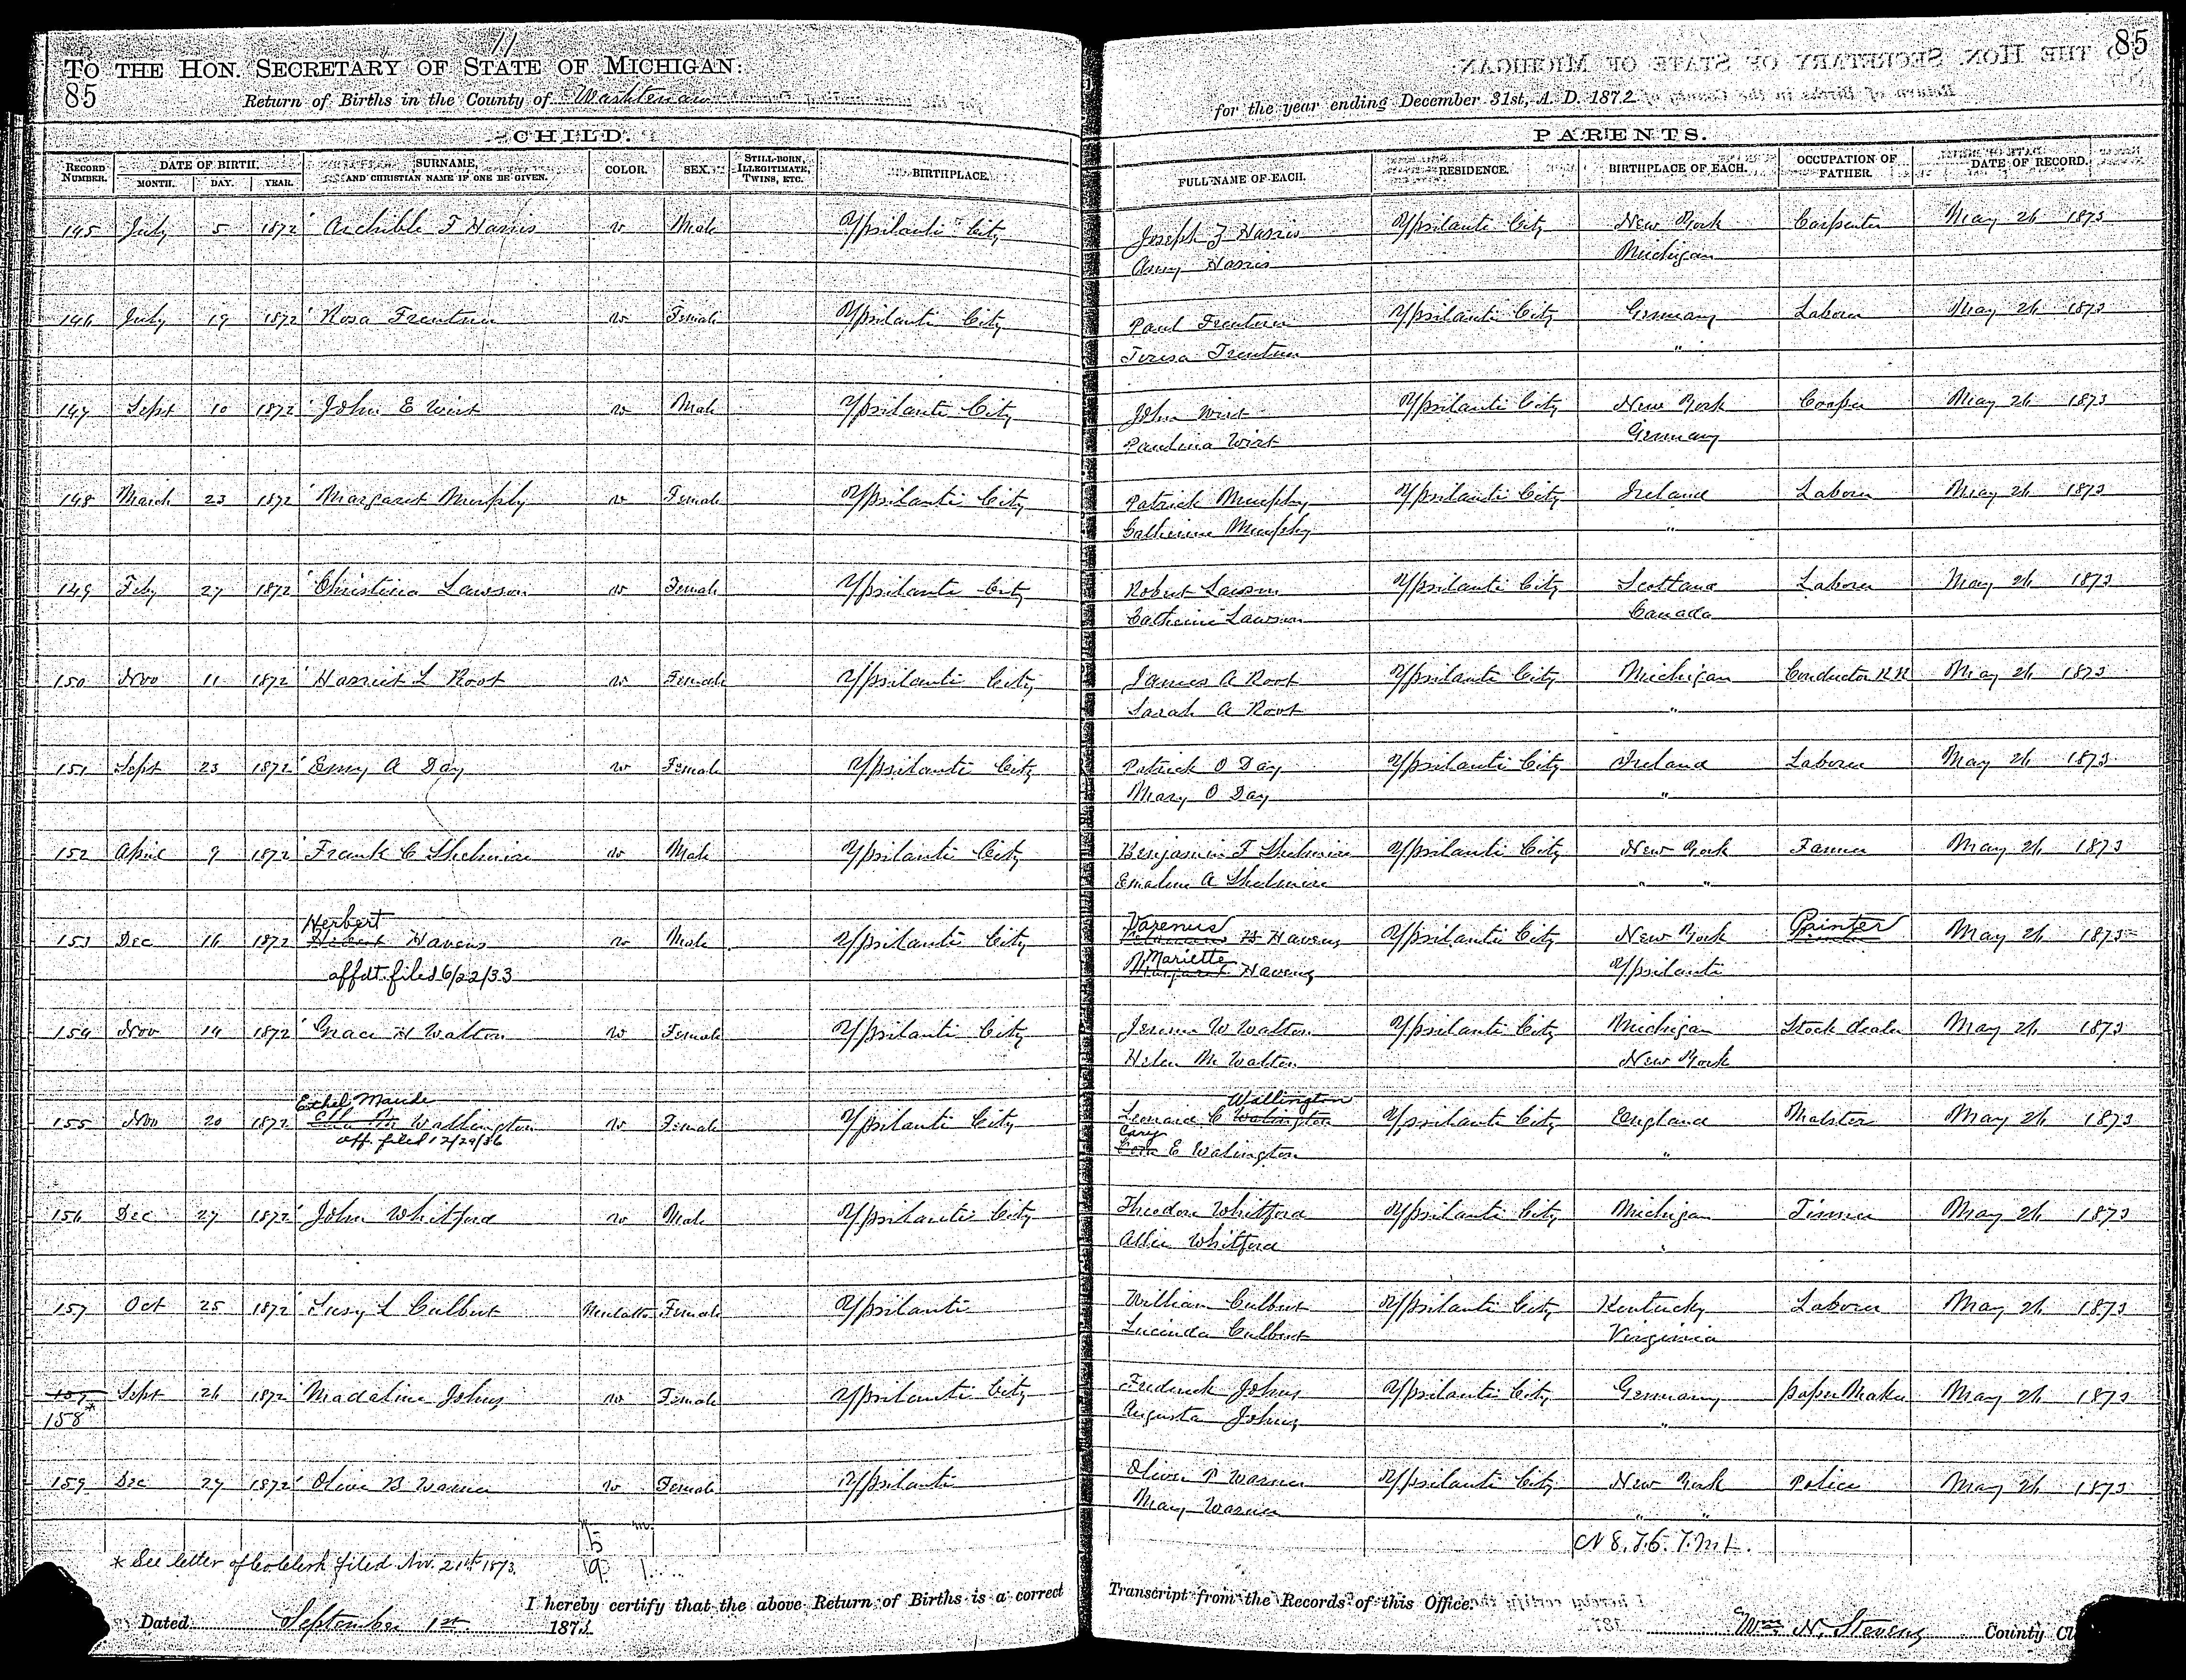 11
TO THE HON. SECRETARY OF STATE OF MICHIGAN:
85
85
Return of Births in the County of Washtenaw for the year ending December 31st, A. D. 1872
CHILD. PARENTS.
RECORD NUMBER. DATE OF BIRTH. MONTH. DAY. YEAR. SURNAME, AND CHRISTIAN NAME IF ONE BE GIVEN. COLOR. SEX. STILL-BORN, ILLEGITIMATE, TWINS, ETC. BIRTHPLACE. FULL NAME OF EACH. RESIDENCE. BIRTHPLACE OF EACH. OCCUPATION OF FATHER. DATE OF RECORD.
145 July 5 1872 Archible F Harris w Male Ypsilanti City Joseph F Harris Ypsilanti City New York Carpenter May 26 1873
Amy Harris Michigan
146 July 19 1872 Rosa w Female Ypsilanti City Paul Ypsilanti City Germany Laborer May 26 1873
Teresa "
147 Sept 10 1872 John E Wirt w Male Ypsilanti City John Wirt Ypsilanti City New York Cooper May 26 1873
Paulina Wirt Germany
148 March 23 1872 Margaret Murphy w Female Ypsilanti City Patrick Murphy Ypsilanti City Ireland Laborer May 26 1873
Catherine Murphy "
149 Feby 27 1872 Christina Lawson w Female Ypsilanti City Robert Lawson Ypsilanti City Scotland Laborer May 26 1873
Catherine Lawson Canada
150 Nov 11 1872 Harriet L Root w Female Ypsilanti City James A Root Ypsilanti City Michigan Conductor RR May 26 1873
Sarah A Root "
151 Sept 23 1872 Emy A Day w Female Ypsilanti City Patrick O Day Ypsilanti City Ireland Laborer May 26 1873
Mary O Day "
152 April 9 1872 Frank C Shelmire w Male Ypsilanti City Benjamin F Shelmire Ypsilanti City New York Farmer May 26 1873
Emaline A Shelmire " "
Herbert Varenus Printer
153 Dec 16 1872 Havens w Male Ypsilanti City H Havens Ypsilanti City New York May 26 1873
affdt. filed 6/22/33 Mariette Margaret Havens Ypsilanti
154 Nov 14 1872 Grace H Walton w Female Ypsilanti City W Walton Ypsilanti City Michigan Stock dealer May 26 1873
Helen M Walton New York
Ethel Maude Wallington
155 Nov 20 1872 Ella M Wallington w Female Ypsilanti City Leonard C Walington Ypsilanti City England Malster May 26 1873
aff. filed 12/29/36 Cary E Walington "
156 Dec 27 1872 John Whitford w Male Ypsilanti City Theodore Whitford Ypsilanti City Michigan Tinner May 26 1873
Allie Whitford "
157 Oct 25 1872 Lusy L Culbert Mulatto Female Ypsilanti William Culbert Ypsilanti City Kentucky Laborer May 26 1873
Lucinda Culbert Virginia
157 Sept 26 1872 Madaline Johns w Female Ypsilanti City Frederick Johns Ypsilanti City Germany paper Maker May 26 1873
158* Augusta Johns "
159 Dec 27 1872 Olive B Warner w Female Ypsilanti Oliver P Warner Ypsilanti City New York Police May 26 1873
Mary Warner " "
* See letter of Co. Clerk filed Nov. 21st 1873.
I hereby certify that the above Return of Births is a correct Transcript from the Records of this Office.
Dated September 1st 1873. Wm N. Stevens County Cl